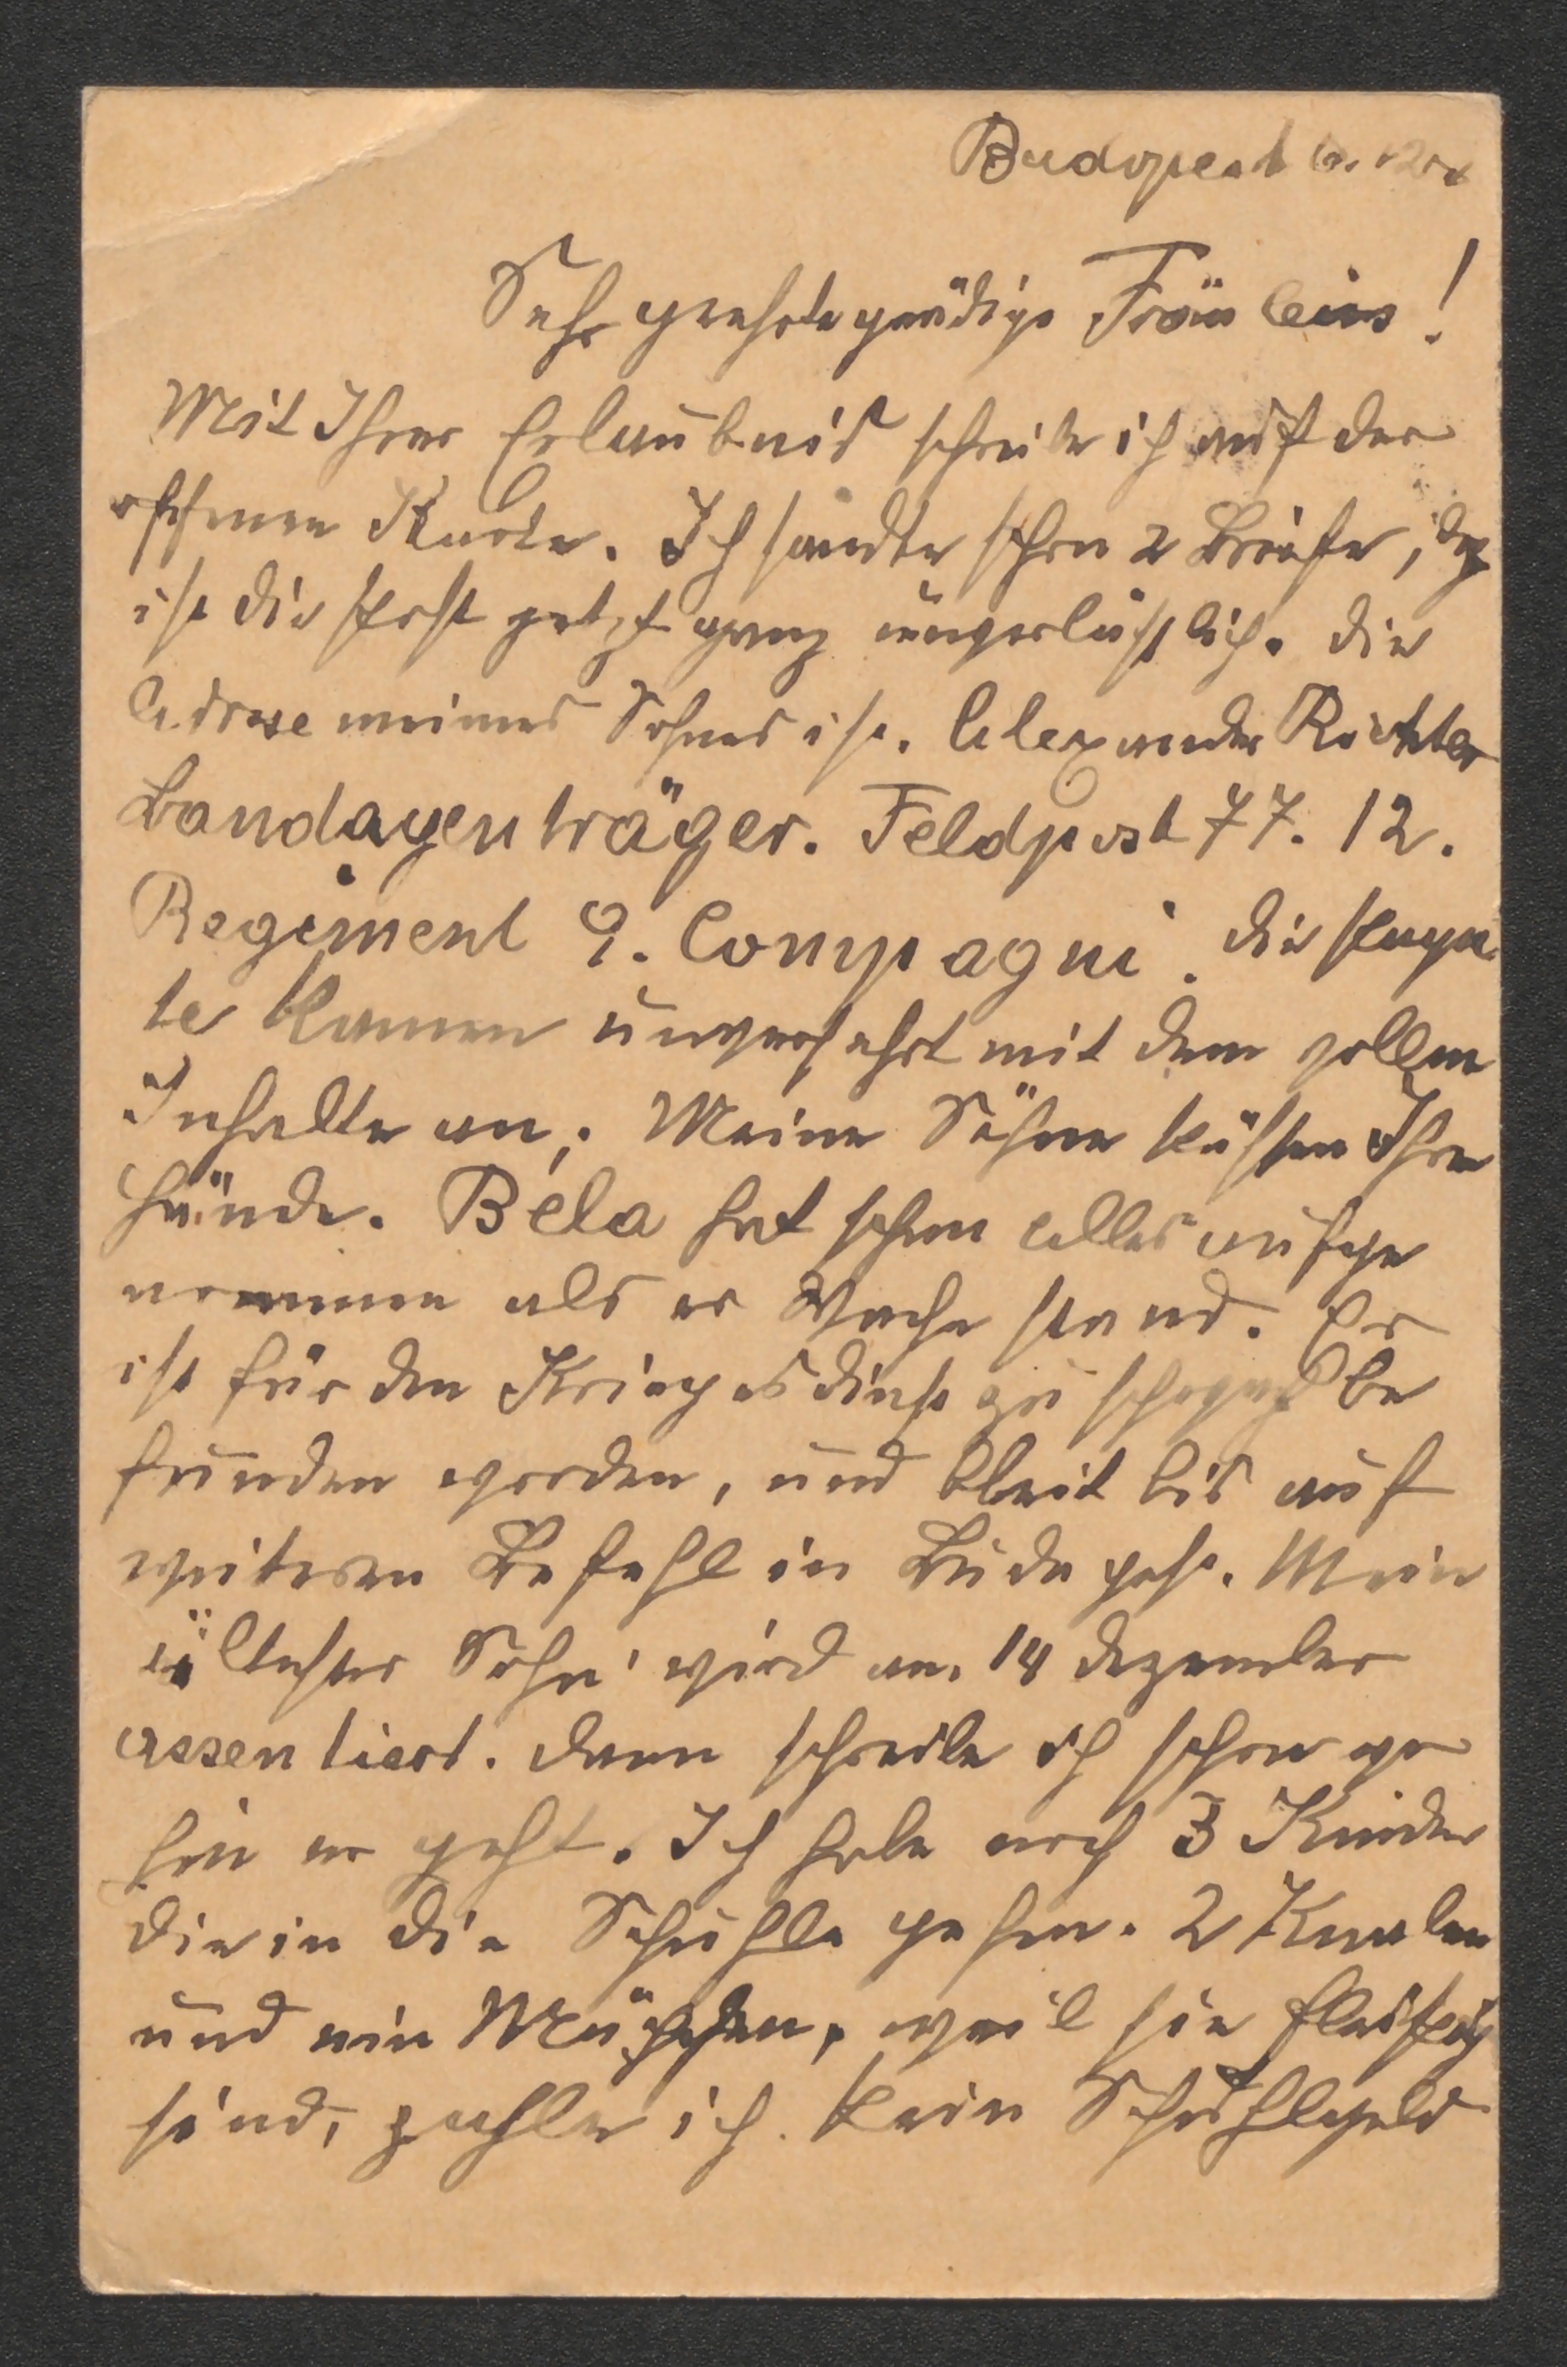 Budapest 6. 12
Sehr geehrte gnädige Fräulein!
Mit Ihrer Erlaubnis schreibe ich auf der
offenen Karte. Ich sandte schon 2 Briefe,
ist die Post jetzt ganz unverläßlich. Die
Adrese meines Sohnes ist. Alexander Richter
Bandagenträger. Feldpost 77. 12.
Regiment 9. Compagni. Die Packe
te kamen unversehrt mit dem vollen
Inhalte an. Meine Söhne küssen Ihre
Hände. Béla hat schon alles aufge
nommen als er Wache stand. Er
ist für den Kriegsdienst zu schwach be
funden worden, und bleit bis auf
weiteren Befehl in Budapest. Mein
ältester Sohn wird am. 14 Dezember
assentiert. Dann schreibe ich schon wo
hin er geht. Ich habe noch 3 Kinder
die in die Schuhle gehen. 2 Knaben
und ein Mädchen, weil sie fleißig
sind, zahle ich kein Schuhlgeld